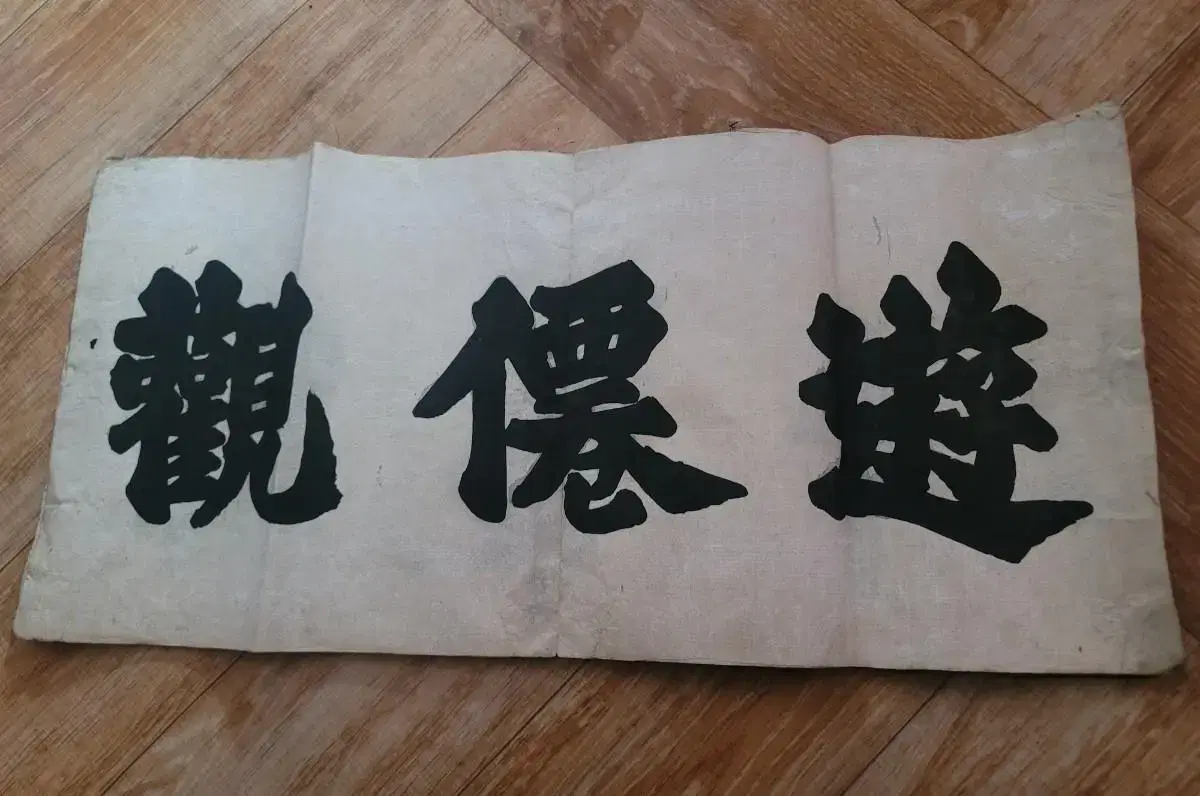 遊僊觀